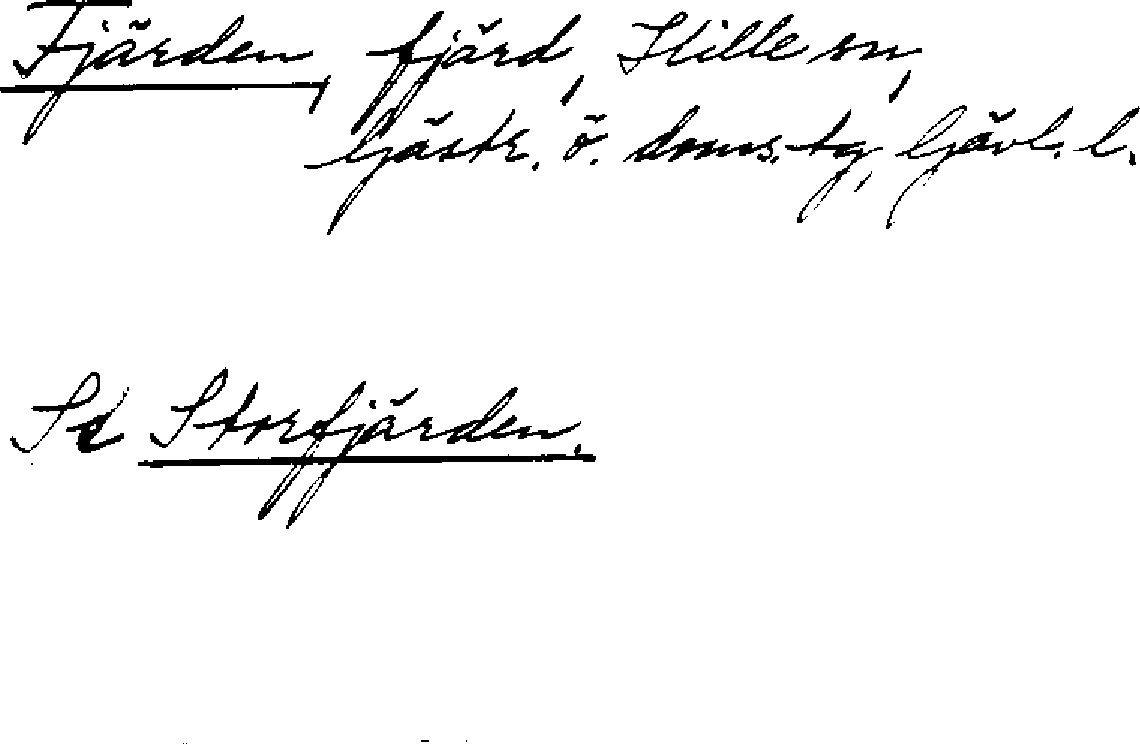 Fjärden, fjärd, Hille sn,
Gästr. ö. doms.tg, Gävl. l.
Se Storfjärden.